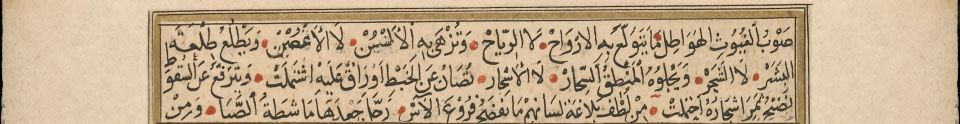 صوب الغيوث الهواطل مما يتولع به الارواح لا الرياح وتزهى به الالسن لا الاغصن ويطلع طلعه
البشر لا الشجر ويجلوه المنطق السحار لا الاسحار تصان عن الخبط اوراق عليه اشتملت وتترفع عن السقوط
نضيج ثمر اشجاره احتملت من لطف بلاغة لسانهم ما يفضح فروع الآس رجل جعدها ماشطة الصبا ومن